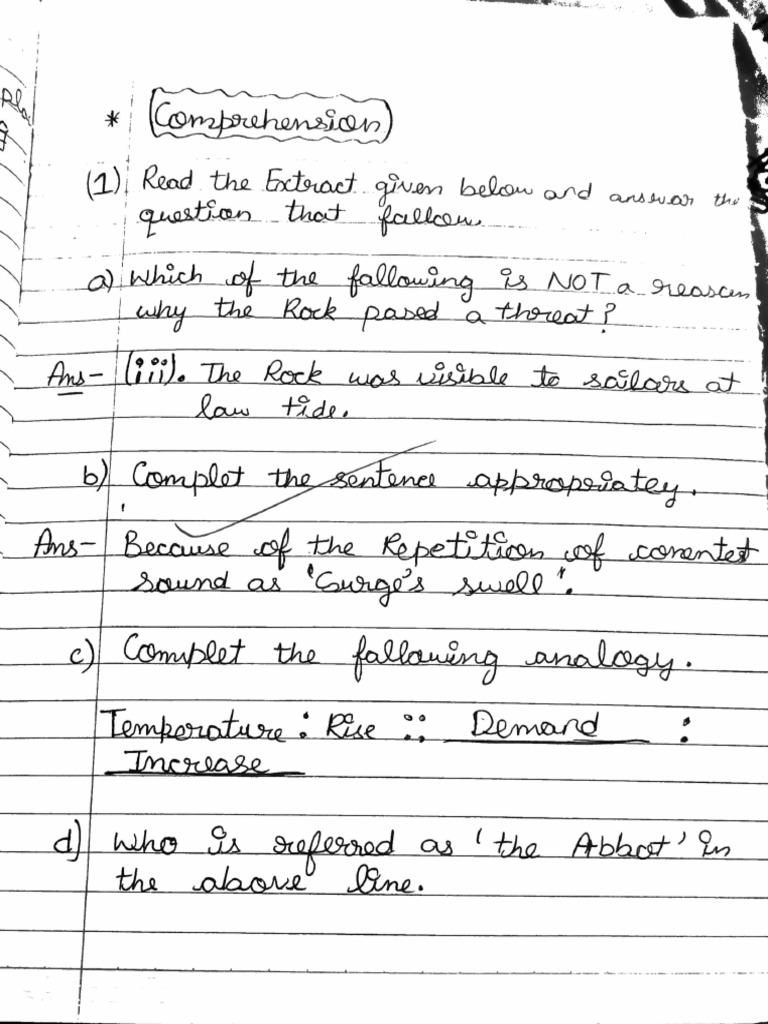 * Comprehension
(1) Read the Extract given below and answer the
question that follow.
a) Which of the following is NOT a reason
why the Rock posed a threat?
Ans- (iii). The Rock was visible to sailors at
law tide.
b) Complet the sentence appropriatey.
Ans- Because of the Repetition of conentet
sound as 'Surge's swell'.
c) Complet the following analogy.
Temperature : Rise :: Demand :
Increase
d) Who is referred as 'the Abbot' in
the above line.